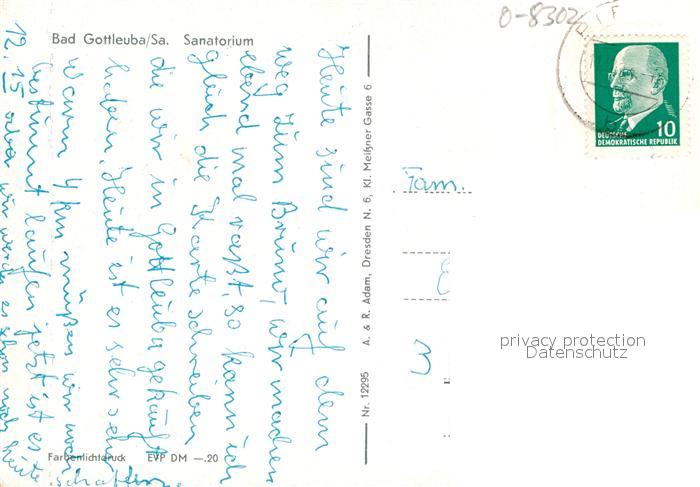 O-8302
Bad Gottleuba/Sa. Sanatorium
Heute sind wir auf dem
weg zum Bruno, wir machen
eben mal rast, so kann ich
gleich die Karte schreiben
die wir in Gottleuba gekauft
haben. Heute ist es sehr schön
warm 4 km müßen wir noch
bestimmt laufen jetzt ist es
12.15 aber wir werden es schon noch heute
schaffen
Farbenlichtdruck EVP DM —.20
Nr. 12295 A. & R. Adam, Dresden N. 6, Kl. Meißner Gasse 6
DEUTSCHE
DEMOKRATISCHE REPUBLIK
10
Fam.
3
privacy protection
Datenschutz